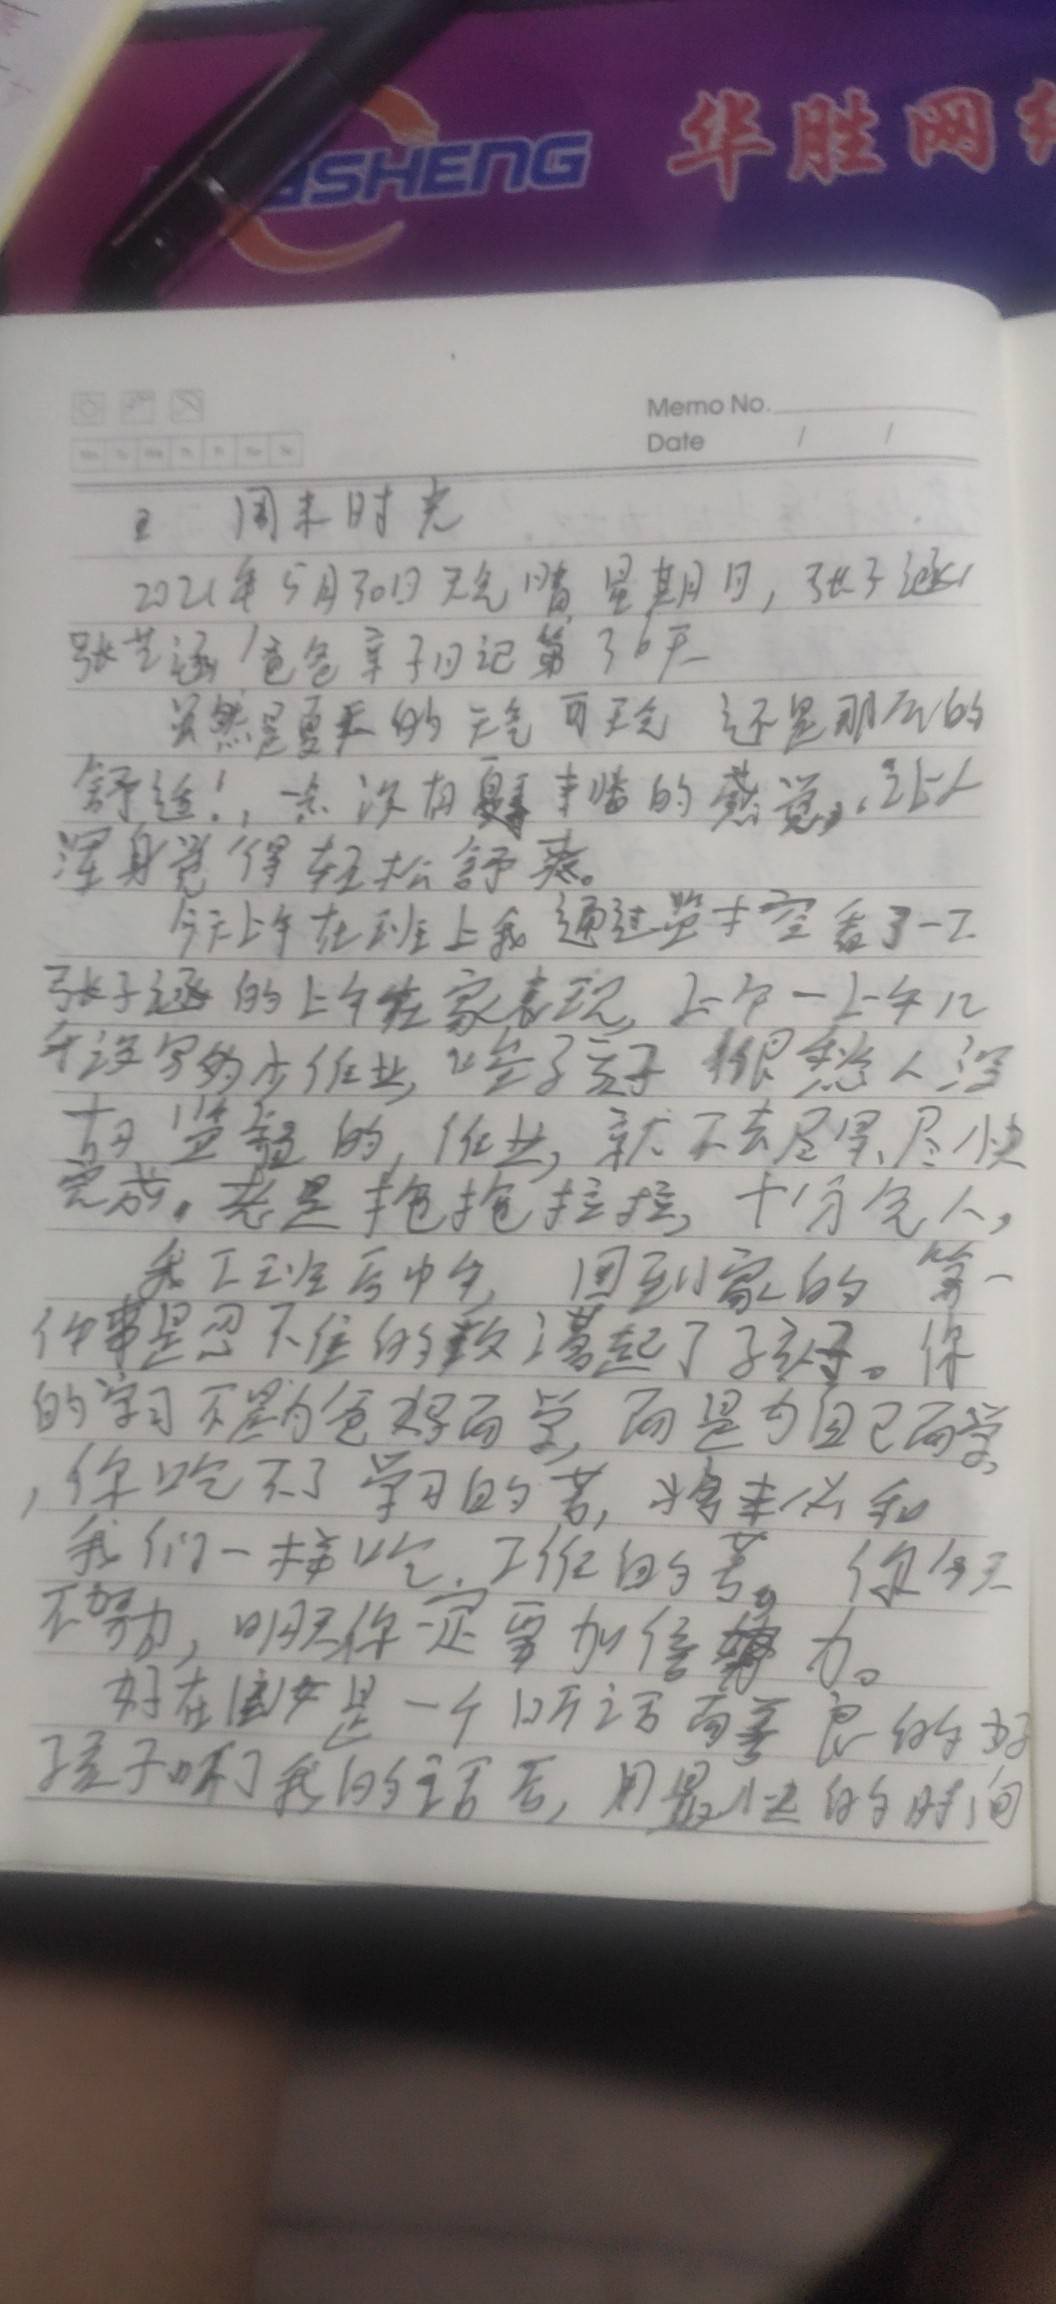 SHENG 华胜网
Memo No.
Date / /
周末时光
2021年5月30日天气晴 星期日,张子涵
张艺涵爸爸亲子日记第36天
虽然是夏天的天气可天气 还是那么的
舒适!,一点没有夏季来临的感觉,让人
浑身觉得轻松舒爽。
今天上午在班上我通过监控看了一下
张子涵的上午在家表现,上午一上午几
乎没写多少作业,这孩子很愁人没
有监督的,作业,就不去尽早、尽快
完成。老是拖拖拉拉,十分气人,
我下班后中午,回到家的 第一
件事是忍不住的数落起了孩子。你
的学习不是为爸妈而学,而是为自己而学,
,你吃不了学习的苦,将来必和
我们一样吃.工作的苦。你今天
不努力,明天你一定要加倍努力。
好在闺女是一个听话而善良的好
孩子听了我的话后,用最快的时间